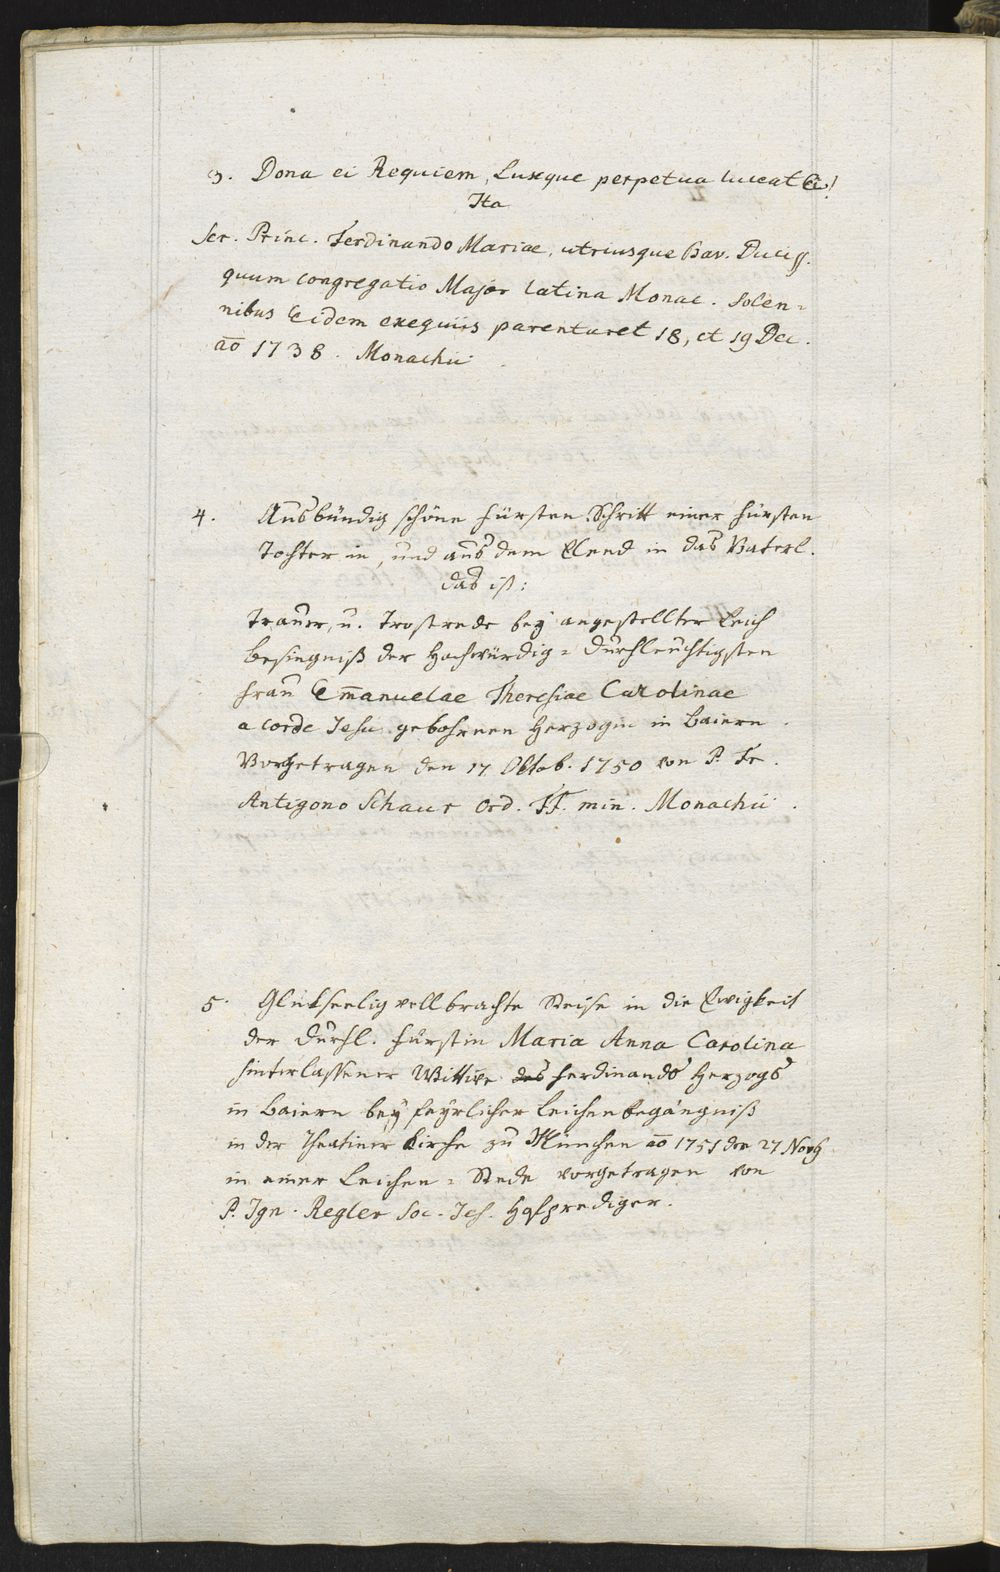 3. Dona ei Requiem, Luxque perpetua luceat Ei!
Ita
Ser. Princ. Ferdinando Mariae, utriusque Bav. Duci ss.
quum congregatio Major latina Monac. solen=
nibus Eidem exequiis parentaret 18, et 19 Dec.
ao 1738. Monachii
4. Ausbündig schöne Fürsten Schritt einer Fürsten
Tochter in, und aus dem Elend in das Vaterl.
das ist:
Trauer, u. Trostrede bey angestellter Leich
besingniß der Hochwürdig= Durchleuchtigsten
Frau Emanuelae Theresiae Carolinae
a corde Jesu gebohrnen Herzogin in Baiern.
Vorgetragen den 17 Oktob. 1750 von P. Fr.
Antigono Schaur Ord. FF. min. Monachii.
5. Glükseelig vollbrachte Reise in die Ewigkeit
der Durchl. Fürstin Maria Anna Carolina
hinterlassener Wittwe des Ferdinands Herzogs
in Baiern bey feyrlicher Leichenbegängniß
in der Theatiner Kirche zu München ao 1751 den 27 Novb
in einer Leichen= Rede vorgetragen von
P. Ign. Regler Soc. Jes. Hofprediger.